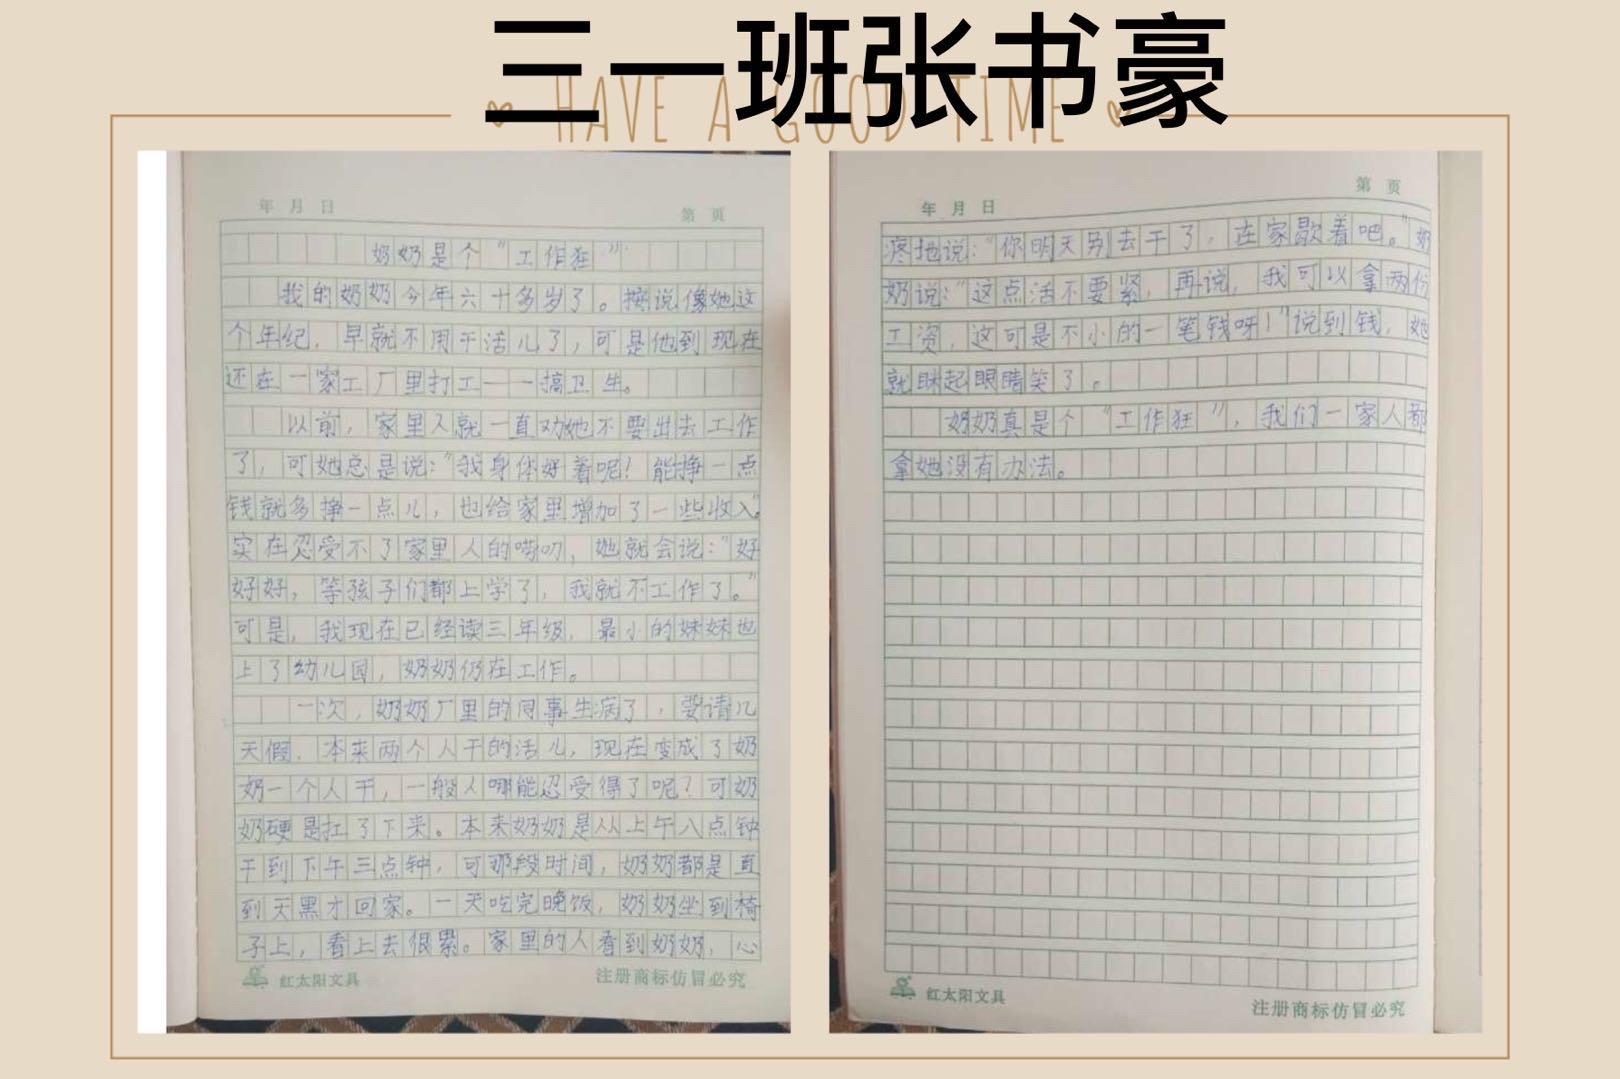 三一班张书豪
HAVE A GOOD TIME
年 月 日
第 页
奶奶是个“工作狂”
我的奶奶今年六十多岁了。按说像她这
个年纪，早就不用干活儿了，可是他到现在
还在一家工厂里打工——搞卫生。
以前，家里人就一直劝她不要出去工作
了，可她总是说：“我身体好着呢！能挣一点
钱就多挣一点儿，也给家里增加了一些收入。”
实在忍受不了家里人的唠叨，她就会说：“好
好好，等孩子们都上学了，我就不工作了。”
可是，我现在已经读三年级，最小的妹妹也
上了幼儿园，奶奶仍在工作。
一次，奶奶厂里的同事生病了，要请几
天假，本来两个人干的活儿，现在变成了奶
奶一个人干，一般人哪能忍受得了呢？可奶
奶硬是扛了下来。本来奶奶是从上午八点钟
干到下午三点钟，可那段时间，奶奶都是直
到天黑才回家。一天吃完晚饭，奶奶坐到椅
子上，看上去很累。家里的人看到奶奶，心
红太阳文具
注册商标仿冒必究
年 月 日
第 页
疼地说：“你明天别去干了，在家歇着吧。”奶
奶说：“这点活不要紧，再说，我可以拿两份
工资，这可是不小的一笔钱呀！”说到钱，她
就眯起眼睛笑了。
奶奶真是个“工作狂”，我们一家人都
拿她没有办法。
红太阳文具
注册商标仿冒必究